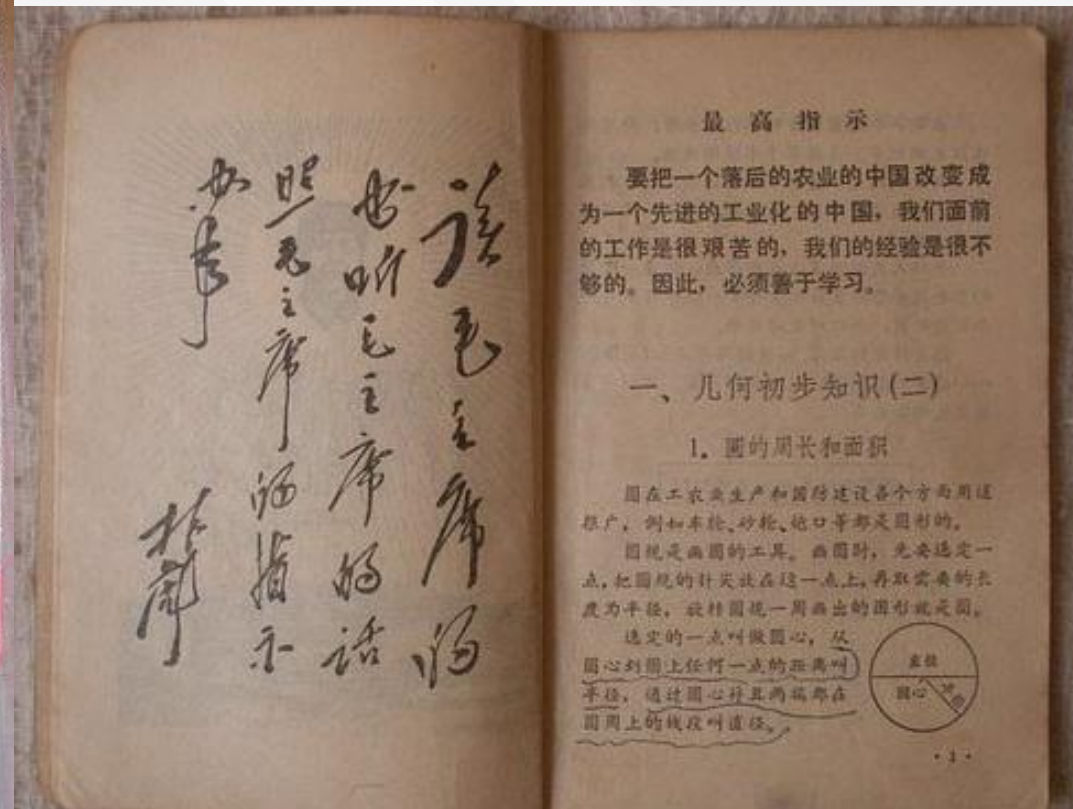 读毛主席的
书听毛主席的话
照毛主席的指示
办事
林彪
最高指示
要把一个落后的农业的中国改变成
为一个先进的工业化的中国，我们面前
的工作是很艰苦的，我们的经验是很不
够的。因此，必须善于学习。
一、几何初步知识(二)
1. 圆的周长和面积
圆在工农业生产和国防建设各个方面用途
很广，例如车轮、砂轮、炮口等都是圆形的。
圆规是画圆的工具。画圆时，先要选定一
点，把圆规的针尖放在这一点上，再取需要的长
度为半径，旋转圆规一周画出的图形就是圆。
选定的一点叫做圆心，从
圆心到圆上任何一点的距离叫
半径，通过圆心并且两端都在
圆周上的线段叫直径。
直径
圆心
半径